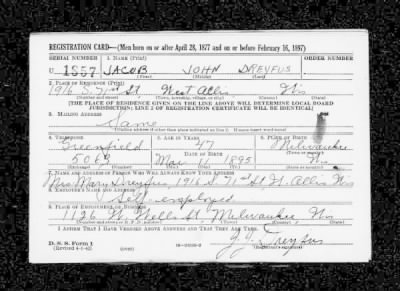 REGISTRATION CARD—(Men born on or after April 28, 1877 and on or before February 16, 1897)
SERIAL NUMBER 1. NAME (Print) ORDER NUMBER
U 1557 JACOB JOHN DREYFUS
(First) (Middle) (Last)
2. PLACE OF RESIDENCE (Print)
1916 S. 71st St West Allis Wis
(Number and street) (Town, township, village, or city) (County) (State)
[THE PLACE OF RESIDENCE GIVEN ON THE LINE ABOVE WILL DETERMINE LOCAL BOARD
JURISDICTION; LINE 2 OF REGISTRATION CERTIFICATE WILL BE IDENTICAL]
3. MAILING ADDRESS
Same
[Mailing address if other than place indicated on line 2. If same insert word same]
4. TELEPHONE 5. AGE IN YEARS 6. PLACE OF BIRTH
Greenfield 47 Milwaukee
DATE OF BIRTH (Town or county)
5063 Mar 11 1895 Wis
(Exchange) (Number) (Mo.) (Day) (Yr.) (State or country)
7. NAME AND ADDRESS OF PERSON WHO WILL ALWAYS KNOW YOUR ADDRESS
Mrs Mary Dreyfus, 1916 S. 71st St W. Allis Wis
8. EMPLOYER'S NAME AND ADDRESS
Self employed
9. PLACE OF EMPLOYMENT OR BUSINESS
1126 W. Wells St Milwaukee, Wis
(Number and street or R. F. D. number) (Town) (County) (State)
I AFFIRM THAT I HAVE VERIFIED ABOVE ANSWERS AND THAT THEY ARE TRUE.
D. S. S. Form 1
(Revised 4-1-42) J. J. Dreyfus
(Registrant's signature)